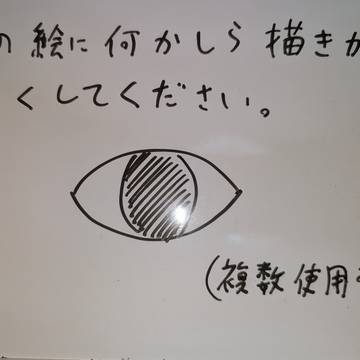 の絵に何かしら描きか
くしてください。
(複数使用